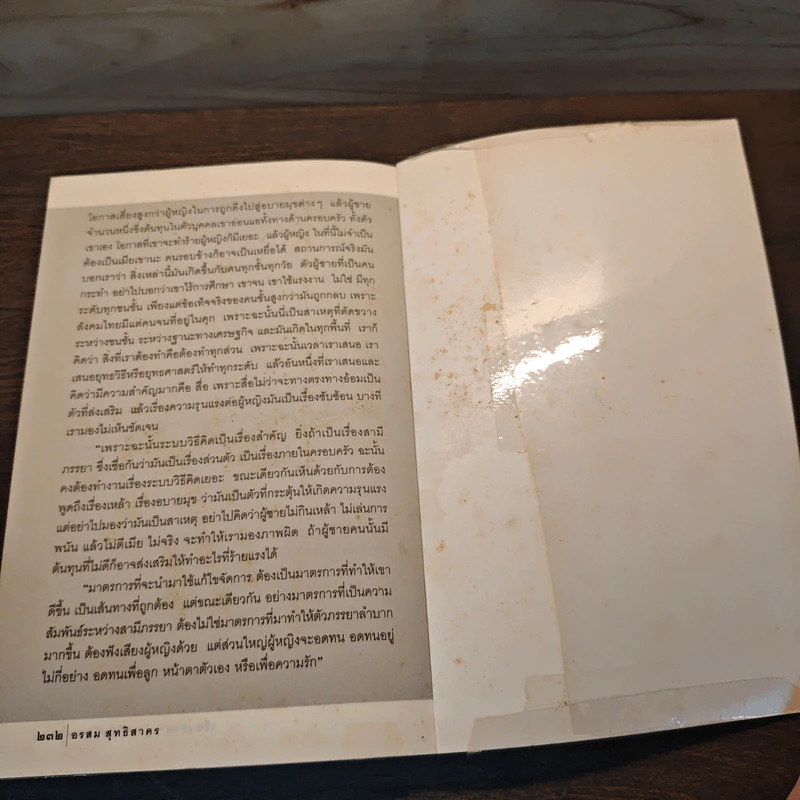 โอกาสเสี่ยงสูงกว่าผู้หญิงในการถูกดึงไปสู่อบายมุขต่างๆ แล้วผู้ชาย
จำนวนหนึ่งซึ่งต้นทุนในตัวบุคคลเขาอ่อนแอทั้งทางด้านครอบครัว ทั้งตัว
เขาเอง โอกาสที่เขาจะทำร้ายผู้หญิงก็มีเยอะ แล้วผู้หญิง ในที่นี้ไม่จำเป็น
ต้องเป็นเมียเขานะ คนรอบข้างก็อาจเป็นเหยื่อได้ สถานการณ์จริงมัน
บอกเราว่า สิ่งเหล่านี้มันเกิดขึ้นกับคนทุกชั้นทุกวัย ตัวผู้ชายที่เป็นคน
กระทำ อย่าไปบอกว่าเขาไร้การศึกษา เขาจน เขาใช้แรงงาน ไม่ใช่ มีทุก
ระดับทุกชนชั้น เพียงแต่ข้อเท็จจริงของคนชั้นสูงกว่ามันถูกกลบ เพราะ
สังคมไทยมีแต่คนจนที่อยู่ในคุก เพราะฉะนั้นนี่เป็นสาเหตุที่ตัดขวาง
ระหว่างชนชั้น ระหว่างฐานะทางเศรษฐกิจ และมันเกิดในทุกพื้นที่ เราก็
คิดว่า สิ่งที่เราต้องทำคือต้องทำทุกส่วน เพราะฉะนั้นเวลาเราเสนอ เรา
เสนอยุทธวิธีหรือยุทธศาสตร์ให้ทำทุกระดับ แล้วอันหนึ่งที่เราเสนอและ
คิดว่ามีความสำคัญมากคือ สื่อ เพราะสื่อไม่ว่าจะทางตรงทางอ้อมเป็น
ตัวที่ส่งเสริม แล้วเรื่องความรุนแรงต่อผู้หญิงมันเป็นเรื่องซับซ้อน บางที
เรามองไม่เห็นชัดเจน
“เพราะฉะนั้นระบบวิธีคิดเป็นเรื่องสำคัญ ยิ่งถ้าเป็นเรื่องสามี
ภรรยา ซึ่งเชื่อกันว่ามันเป็นเรื่องส่วนตัว เป็นเรื่องภายในครอบครัว ฉะนั้น
คงต้องทำงานเรื่องระบบวิธีคิดเยอะ ขณะเดียวกันเห็นด้วยกับการต้อง
พูดถึงเรื่องเหล้า เรื่องอบายมุข ว่ามันเป็นตัวที่กระตุ้นให้เกิดความรุนแรง
แต่อย่าไปมองว่ามันเป็นสาเหตุ อย่าไปคิดว่าผู้ชายไม่กินเหล้า ไม่เล่นการ
พนัน แล้วไม่ตีเมีย ไม่จริง จะทำให้เรามองภาพผิด ถ้าผู้ชายคนนั้นมี
ต้นทุนที่ไม่ดีก็อาจส่งเสริมให้ทำอะไรที่ร้ายแรงได้
“มาตรการที่จะนำมาใช้แก้ไขจัดการ ต้องเป็นมาตรการที่ทำให้เขา
ดีขึ้น เป็นเส้นทางที่ถูกต้อง แต่ขณะเดียวกัน อย่างมาตรการที่เป็นความ
สัมพันธ์ระหว่างสามีภรรยา ต้องไม่ใช่มาตรการที่มาทำให้ตัวภรรยาลำบาก
มากขึ้น ต้องฟังเสียงผู้หญิงด้วย แต่ส่วนใหญ่ผู้หญิงจะอดทน อดทนอยู่
ไม่กี่อย่าง อดทนเพื่อลูก หน้าตาตัวเอง หรือเพื่อความรัก”
๒๓๒ | อรสม สุทธิสาคร